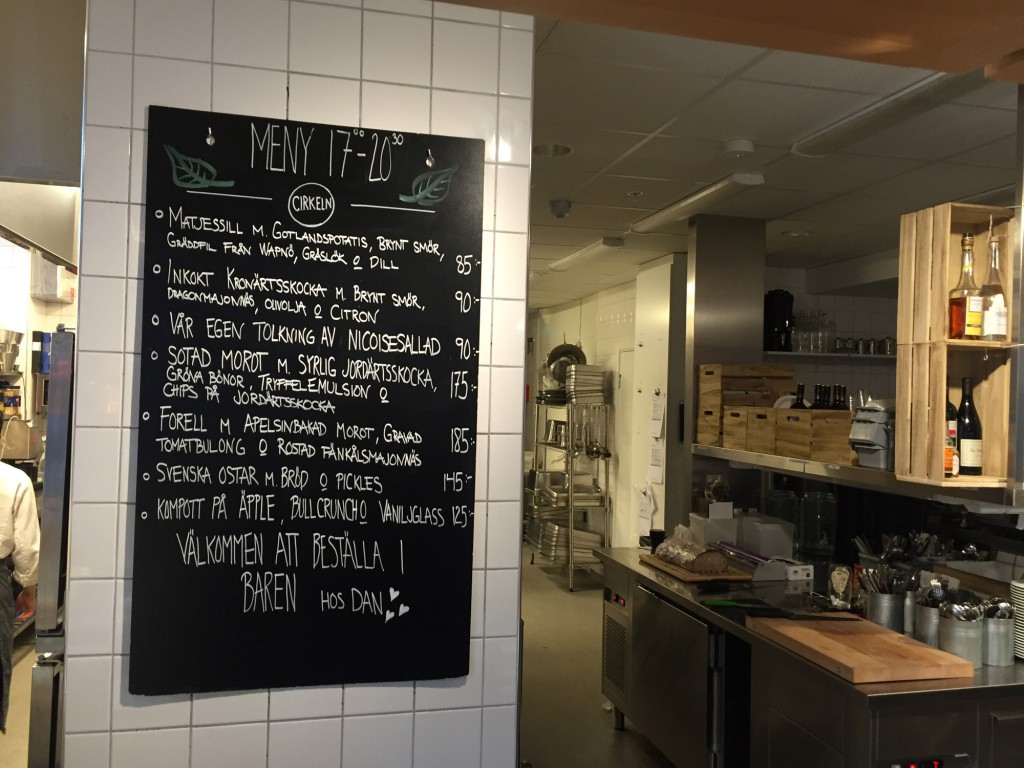 MENY 17⁰⁰-20³⁰
CIRKELN
MATJESSILL M. GOTLANDSPOTATIS, BRYNT SMÖR,
GRÄDDFIL FRÅN WAPNÖ, GRÄSLÖK O DILL 85:-
INKOKT KRONÄRTSSKOCKA M. BRYNT SMÖR,
DRAGONMAJONNÄS, OLIVOLJA O CITRON 90:-
VÅR EGEN TOLKNING AV NICOISESALLAD 90:-
SOTAD MOROT M. SYRLIG JORDÄRTSSKOCKA,
GRÖNA BÖNOR, TRYFFELEMULSION O 175:-
CHIPS PÅ JORDÄRTSSKOCKA
FORELL M APELSINBAKAD MOROT, GRAVAD
TOMATBULONG O ROSTAD FÄNKÅLSMAJONNÄS 185:-
SVENSKA OSTAR M. BRÖD O PICKLES 145:-
KOMPOTT PÅ ÄPPLE, BULLCRUNCH O VANILJGLASS 125:-
VÄLKOMMEN ATT BESTÄLLA I
BAREN HOS DAN